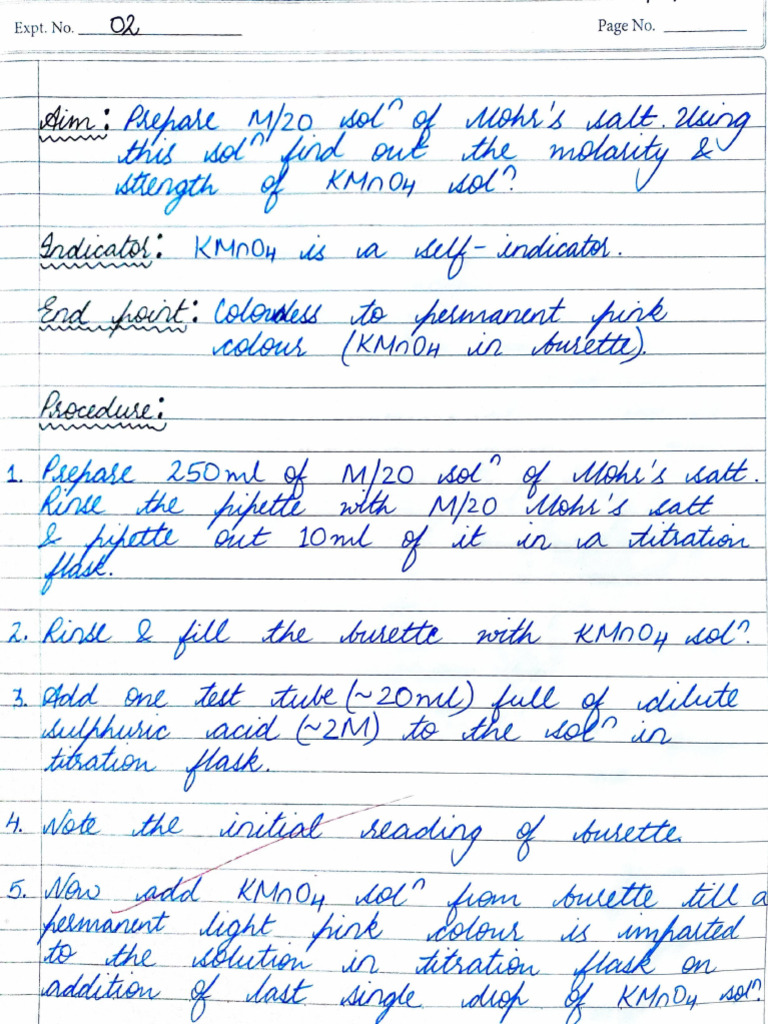 Expt. No. 02
Page No.
Aim: Prepare M/20 solⁿ of Mohr's salt. Using
this solⁿ find out the molarity &
strength of KMnO4 solⁿ.
Indicator: KMnO4 is a self-indicator.
End point: Colourless to permanent pink
colour (KMnO4 in burette).
Procedure:
1. Prepare 250ml of M/20 solⁿ of Mohr's salt.
Rinse the pipette with M/20 Mohr's salt
& pipette out 10ml of it in a titration
flask.
2. Rinse & fill the burette with KMnO4 solⁿ.
3. Add one test tube (~20ml) full of dilute
sulphuric acid (~2M) to the solⁿ in
titration flask.
4. Note the initial reading of burette.
5. Now add KMnO4 solⁿ from burette till a
permanent light pink colour is imparted
to the solution in titration flask on
addition of last single drop of KMnO4 solⁿ.